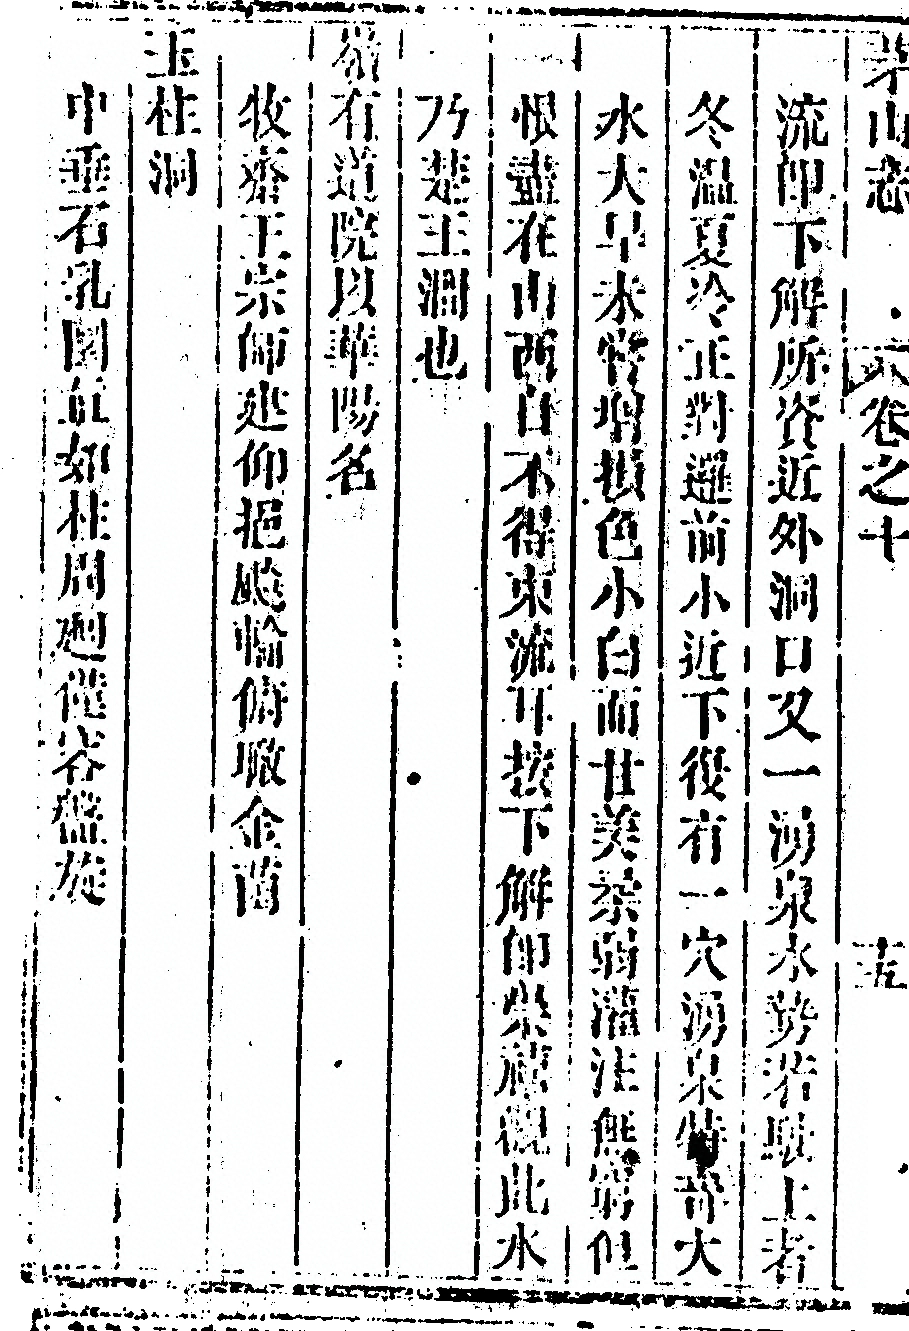 茅山志 卷之十 五
流卽下解所資近外洞口又一湧泉水勢若駛上者
冬温夏冷正對邏前小近下復有一穴湧泉特奇大
水大旱未嘗增損色小白而甘美柔弱灌注無窮但
恨盡在山西自不得東流耳按下解卽崇禧觀此水
乃楚王澗也
嶺右道院以華陽名
牧齋王宗師建仰挹飈輪俯瞰金菌
玉柱洞
中垂石乳圍五如柱周廻僅容盤旋